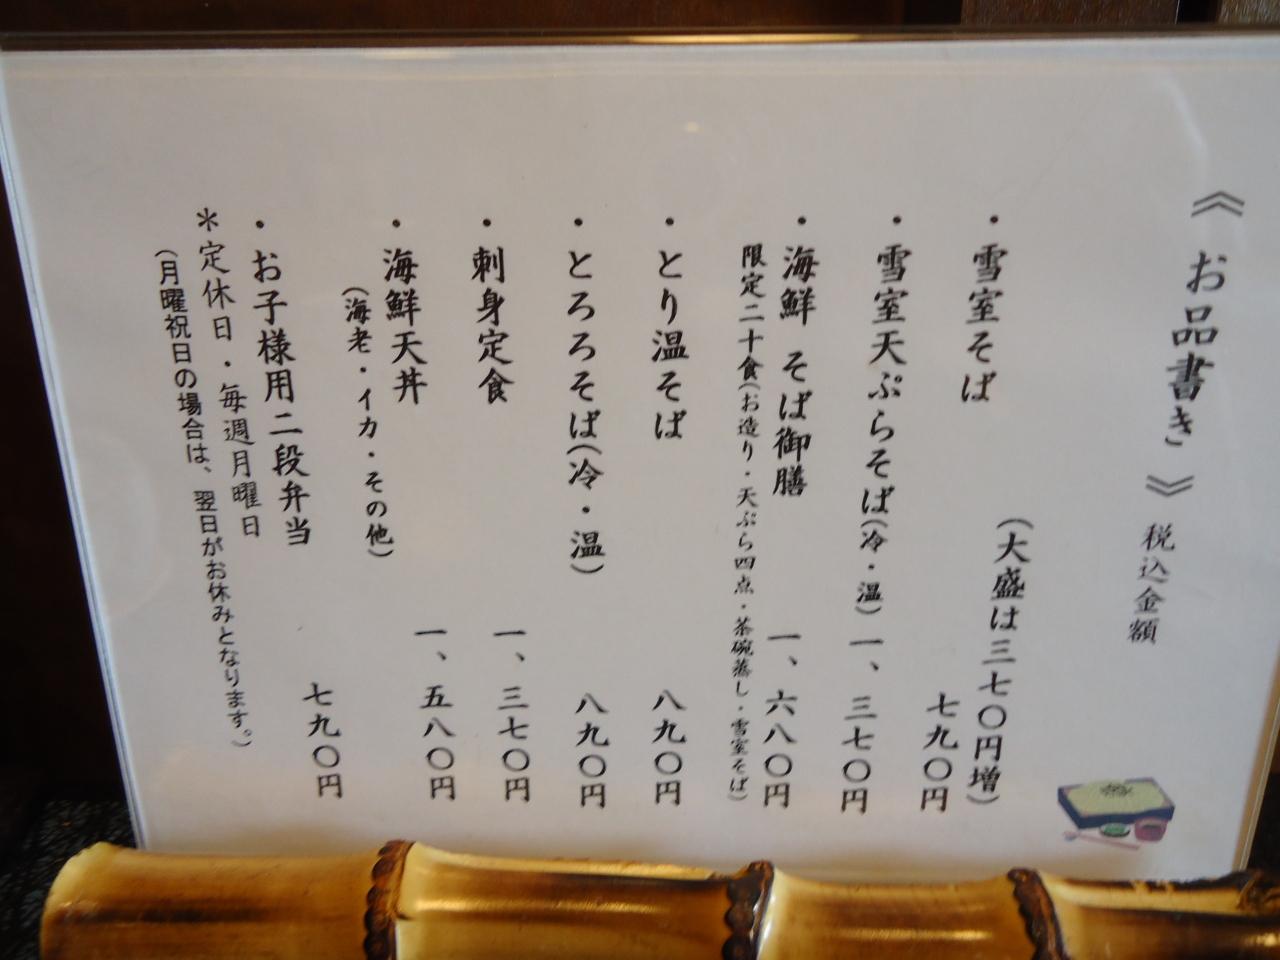 《 お品書き 》 税込金額
(大盛は三七〇円増)
・雪室そば 七九〇円
・雪室天ぷらそば(冷・温) 一、三七〇円
・海鮮 そば御膳 一、六八〇円
限定二十食(お造り・天ぷら四点・茶碗蒸し・雪室そば)
・とり温そば 八九〇円
・とろろそば(冷・温) 八九〇円
・刺身定食 一、三七〇円
・海鮮天丼 一、五八〇円
(海老・イカ・その他)
・お子様用二段弁当 七九〇円
＊定休日・毎週月曜日
(月曜祝日の場合は、翌日がお休みとなります。)